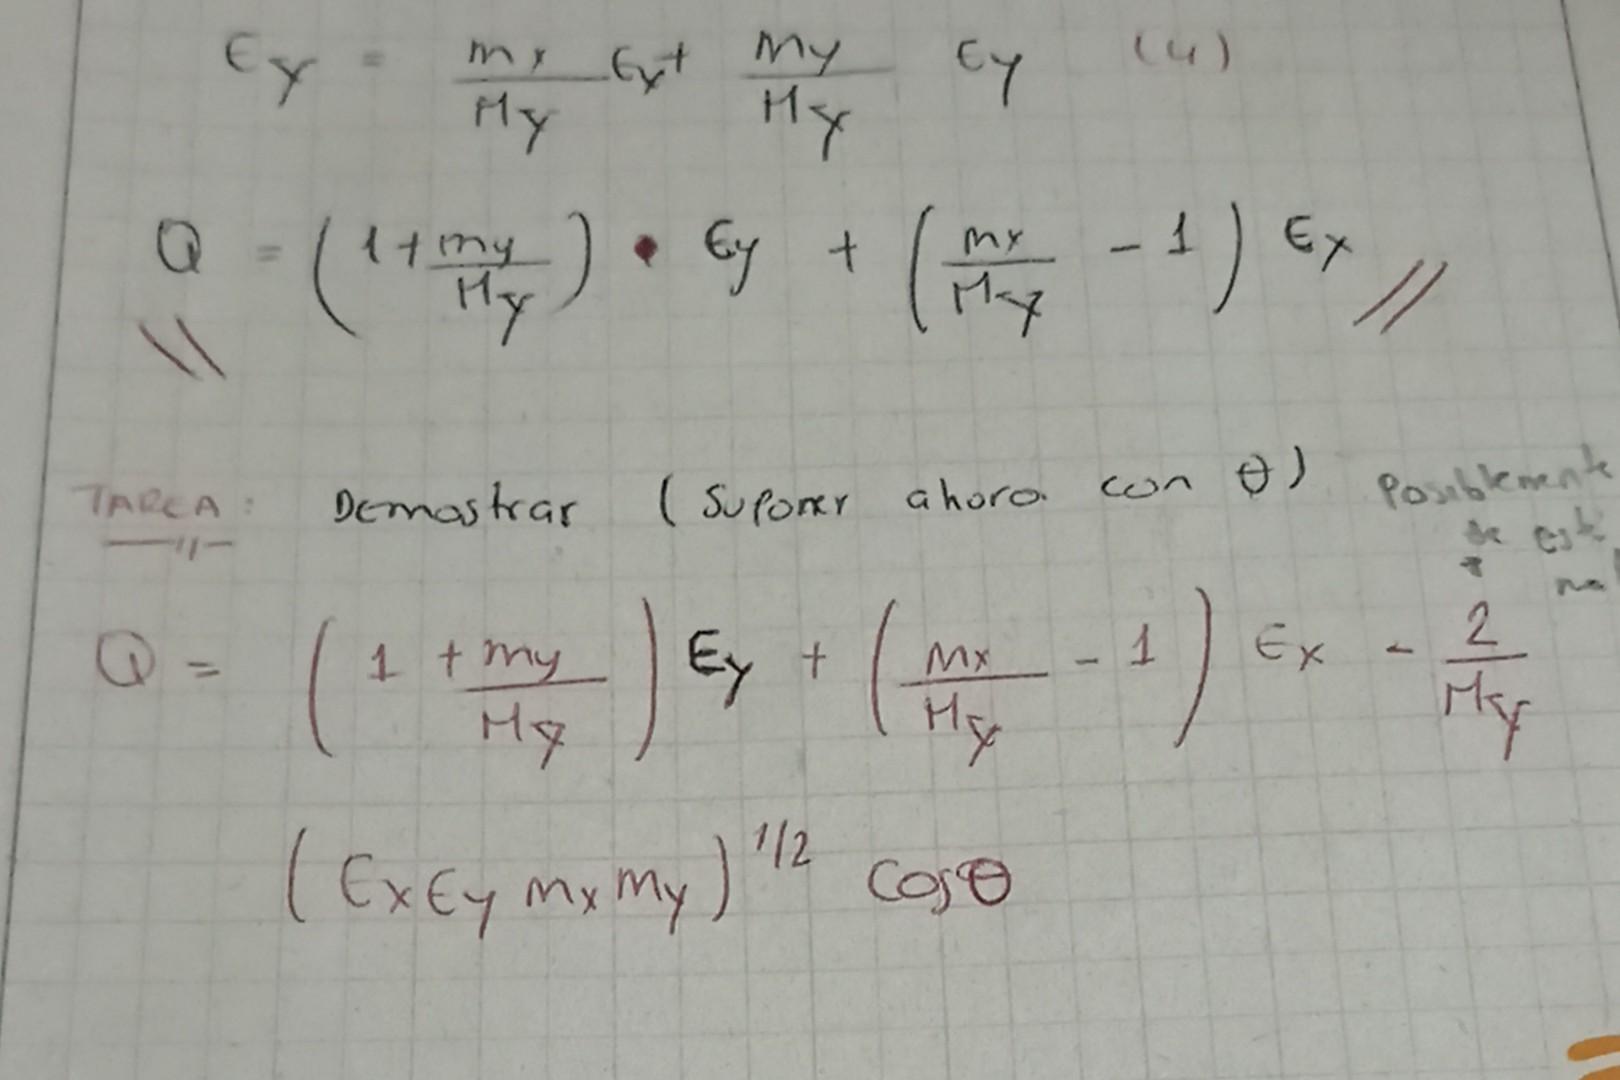 Ey = mx/My Ex + my/My Ey (4)
Q = (1 + my/My) • Ey + (mx/My - 1) Ex //
TAREA: Demostrar (Suponer ahora con θ) Posiblemente
est
Q = (1 + my/My) Ey + (mx/My - 1) Ex - 2/My
(ExEy mx my)^1/2 cosθ